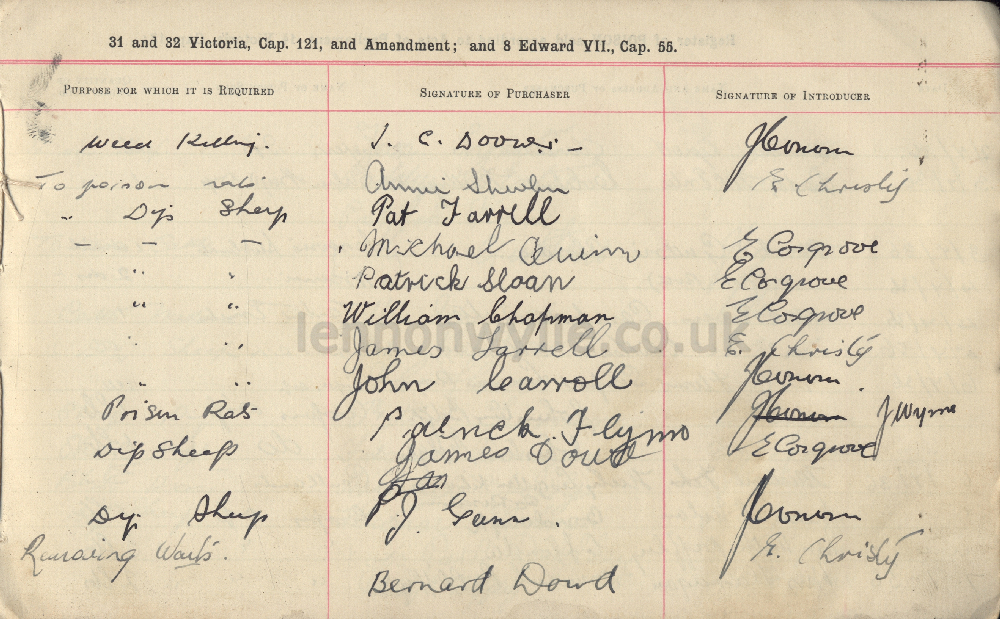 31 and 32 Victoria, Cap. 121, and Amendment; and 8 Edward VII., Cap. 55.
Purpose for which it is Required Signature of Purchaser Signature of Introducer
Weed Killing. J. C.
To poison rats Annie E. Christy
" Dip Sheep Pat Farrell
– – – Michael Quinn E Cosgrove
" " Patrick Sloan E Cosgrove
" " William Chapman E Cosgrove
" " James Farrell E. Christy
" " John Carroll
Poison Rats Patrick Flynn J Wynne
Dip Sheep James Dowd E Cosgrove
Dip Sheep P J. Gunn.
Removing Warts. Bernard Dowd E. Christy
lennonwylie.co.uk